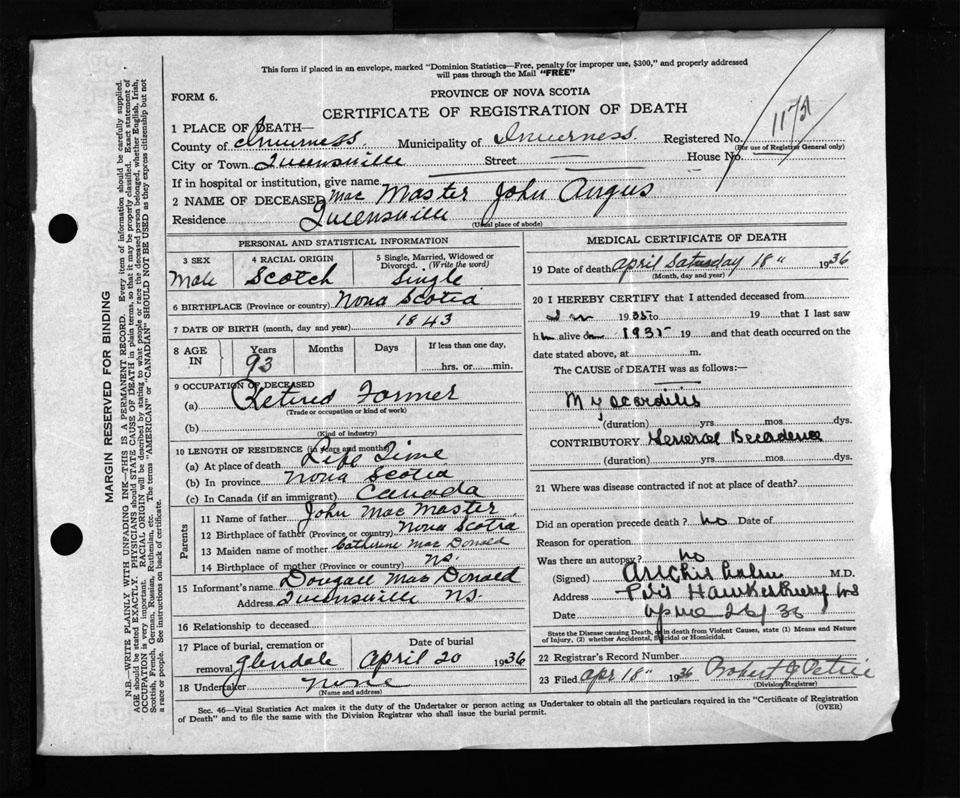 This form if placed in an envelope, marked "Dominion Statistics—Free, penalty for improper use, $300," and properly addressed
will pass through the Mail "FREE"
FORM 6.
PROVINCE OF NOVA SCOTIA
CERTIFICATE OF REGISTRATION OF DEATH
1 PLACE OF DEATH—
County of Inverness Municipality of Inverness Registered No. 1171
(For use of Registrar General only)
City or Town Queensville Street — House No.
If in hospital or institution, give name
2 NAME OF DECEASED Mac Master John Angus
Residence Queensville
(Usual place of abode)
PERSONAL AND STATISTICAL INFORMATION
3 SEX 4 RACIAL ORIGIN 5 Single, Married, Widowed or
Divorced. (Write the word)
Male Scotch Single
6 BIRTHPLACE (Province or country) Nova Scotia
7 DATE OF BIRTH (month, day and year) 1843
8 AGE IN Years Months Days If less than one day,
93 hrs. or min.
9 OCCUPATION OF DECEASED
(a) Retired Farmer
(Trade or occupation or kind of work)
(b)
(Kind of industry)
10 LENGTH OF RESIDENCE (in years and months)
(a) At place of death Life Time
(b) In province Nova Scotia
(c) In Canada (if an immigrant) Canada
Parents
11 Name of father John Mac Master
12 Birthplace of father (Province or country) Nova Scotia
13 Maiden name of mother Catherine Mac Donald
14 Birthplace of mother (Province or country) NS.
15 Informant's name Dougall Mac Donald
Address Queensville NS.
16 Relationship to deceased
17 Place of burial, cremation or Date of burial
removal Glendale April 20 1936
18 Undertaker none
(Name and address)
MEDICAL CERTIFICATE OF DEATH
19 Date of death April Saturday 18" 1936
(Month, day and year)
20 I HEREBY CERTIFY that I attended deceased from
In 1935 to 19 that I last saw
him alive on 1935 19 and that death occurred on the
date stated above, at m.
The CAUSE of DEATH was as follows:—
Myocarditis
(duration) yrs. mos. dys.
CONTRIBUTORY General
(duration) yrs. mos. dys.
21 Where was disease contracted if not at place of death?
Did an operation precede death? No Date of
Reason for operation
Was there an autopsy? no
(Signed) M.D.
Address Port Hawkesbury NS
Date 26/36
State the Disease causing Death, or in death from Violent Causes, state (1) Means and Nature
of Injury, (2) whether Accidental, Suicidal or Homicidal.
22 Registrar's Record Number
23 Filed Apr 18" 1936 Robert J Petrie
(Division Registrar)
Sec. 46—Vital Statistics Act makes it the duty of the Undertaker or person acting as Undertaker to obtain all the particulars required in the "Certificate of Registration
of Death" and to file the same with the Division Registrar who shall issue the burial permit. (OVER)
MARGIN RESERVED FOR BINDING
N.B.—WRITE PLAINLY WITH UNFADING INK—THIS IS A PERMANENT RECORD. Every item of information should be carefully supplied.
AGE should be stated EXACTLY. PHYSICIANS should STATE CAUSE OF DEATH in plain terms, so that it may be properly classified. Exact statement of
OCCUPATION is very important. RACIAL ORIGIN will be described by stating to what people or race the deceased person belonged, whether English, Irish,
Scottish, French, German, Russian, Ruthenian, etc. The terms "AMERICAN" or "CANADIAN" SHOULD NOT BE USED as they express citizenship but not
a race or people. See instructions on back of certificate.